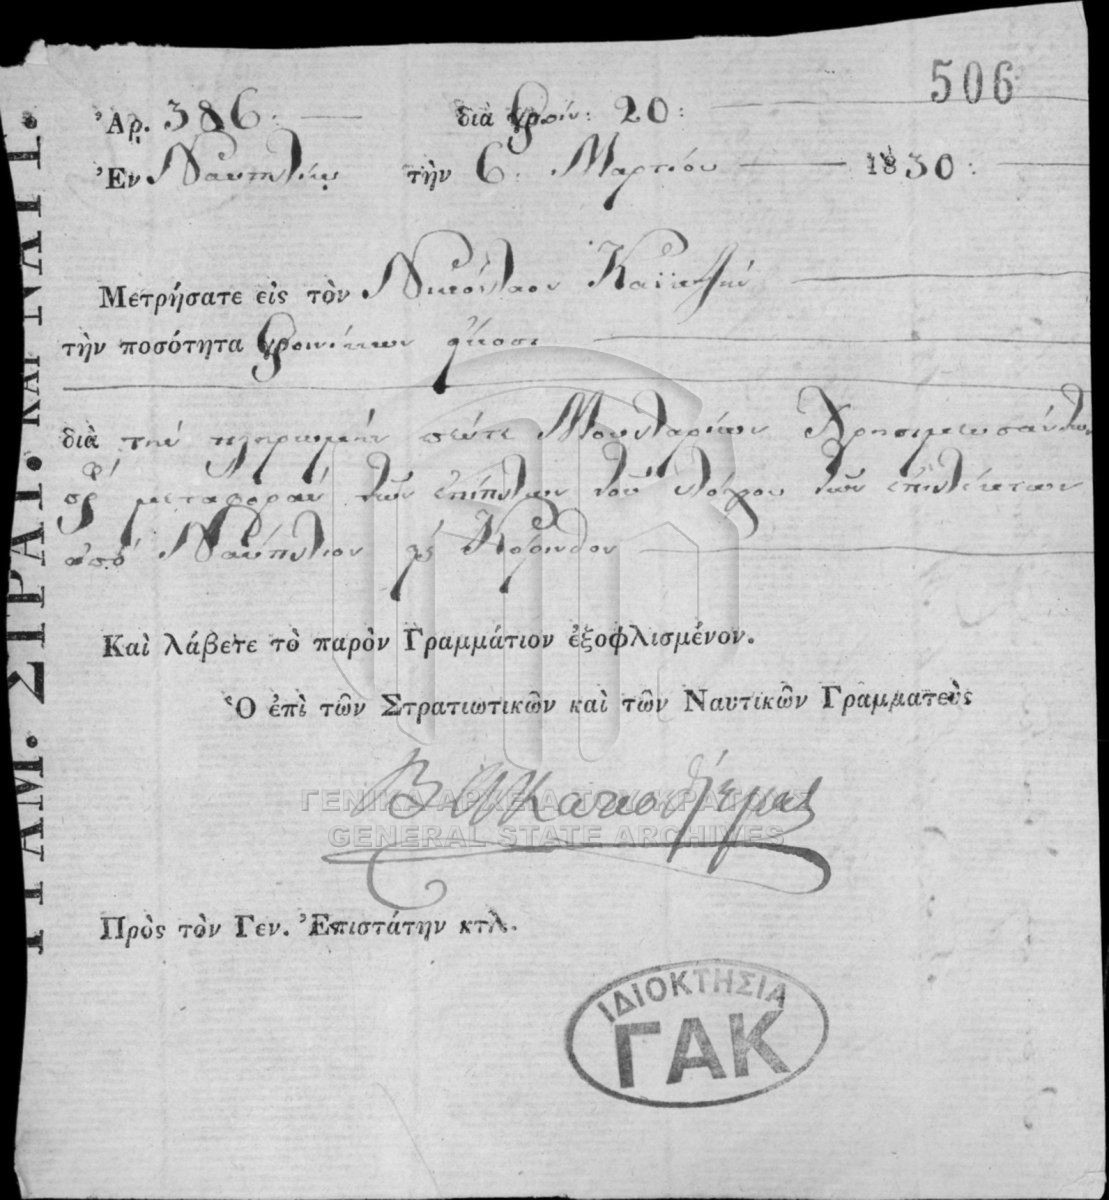 506
Ἀρ. 386: διὰ Φοίν: 20:
Ἐν Ναυπλίῳ τὴν 6: Μαρτίου 1830:
Μετρήσατε εἰς τὸν Νικόλαον
τὴν ποσότητα Φοινίκων εἴκοσι
διὰ τὴν πληρωμὴν πέντε Μουλαρίων Χρησιμευσάντων
μεταφορὰν τῶν ἐπίπλων τοῦ λόχου τῶν
ἀπὸ Ναύπλιον Κόρινθον
Καὶ λάβετε τὸ παρὸν Γραμμάτιον ἐξοφλισμένον.
Ὁ ἐπὶ τῶν Στρατιωτικῶν καὶ τῶν Ναυτικῶν Γραμματεὺς
Πρὸς τὸν Γεν. Ἐπιστάτην κτλ.
ΓΡΑΜ. ΣΤΡΑΤ. ΚΑΙ ΝΑΥΤ.
ΓΕΝΙΚΑ ΑΡΧΕΙΑ ΤΟΥ ΚΡΑΤΟΥΣ
GENERAL STATE ARCHIVES
ΙΔΙΟΚΤΗΣΙΑ
ΓΑΚ